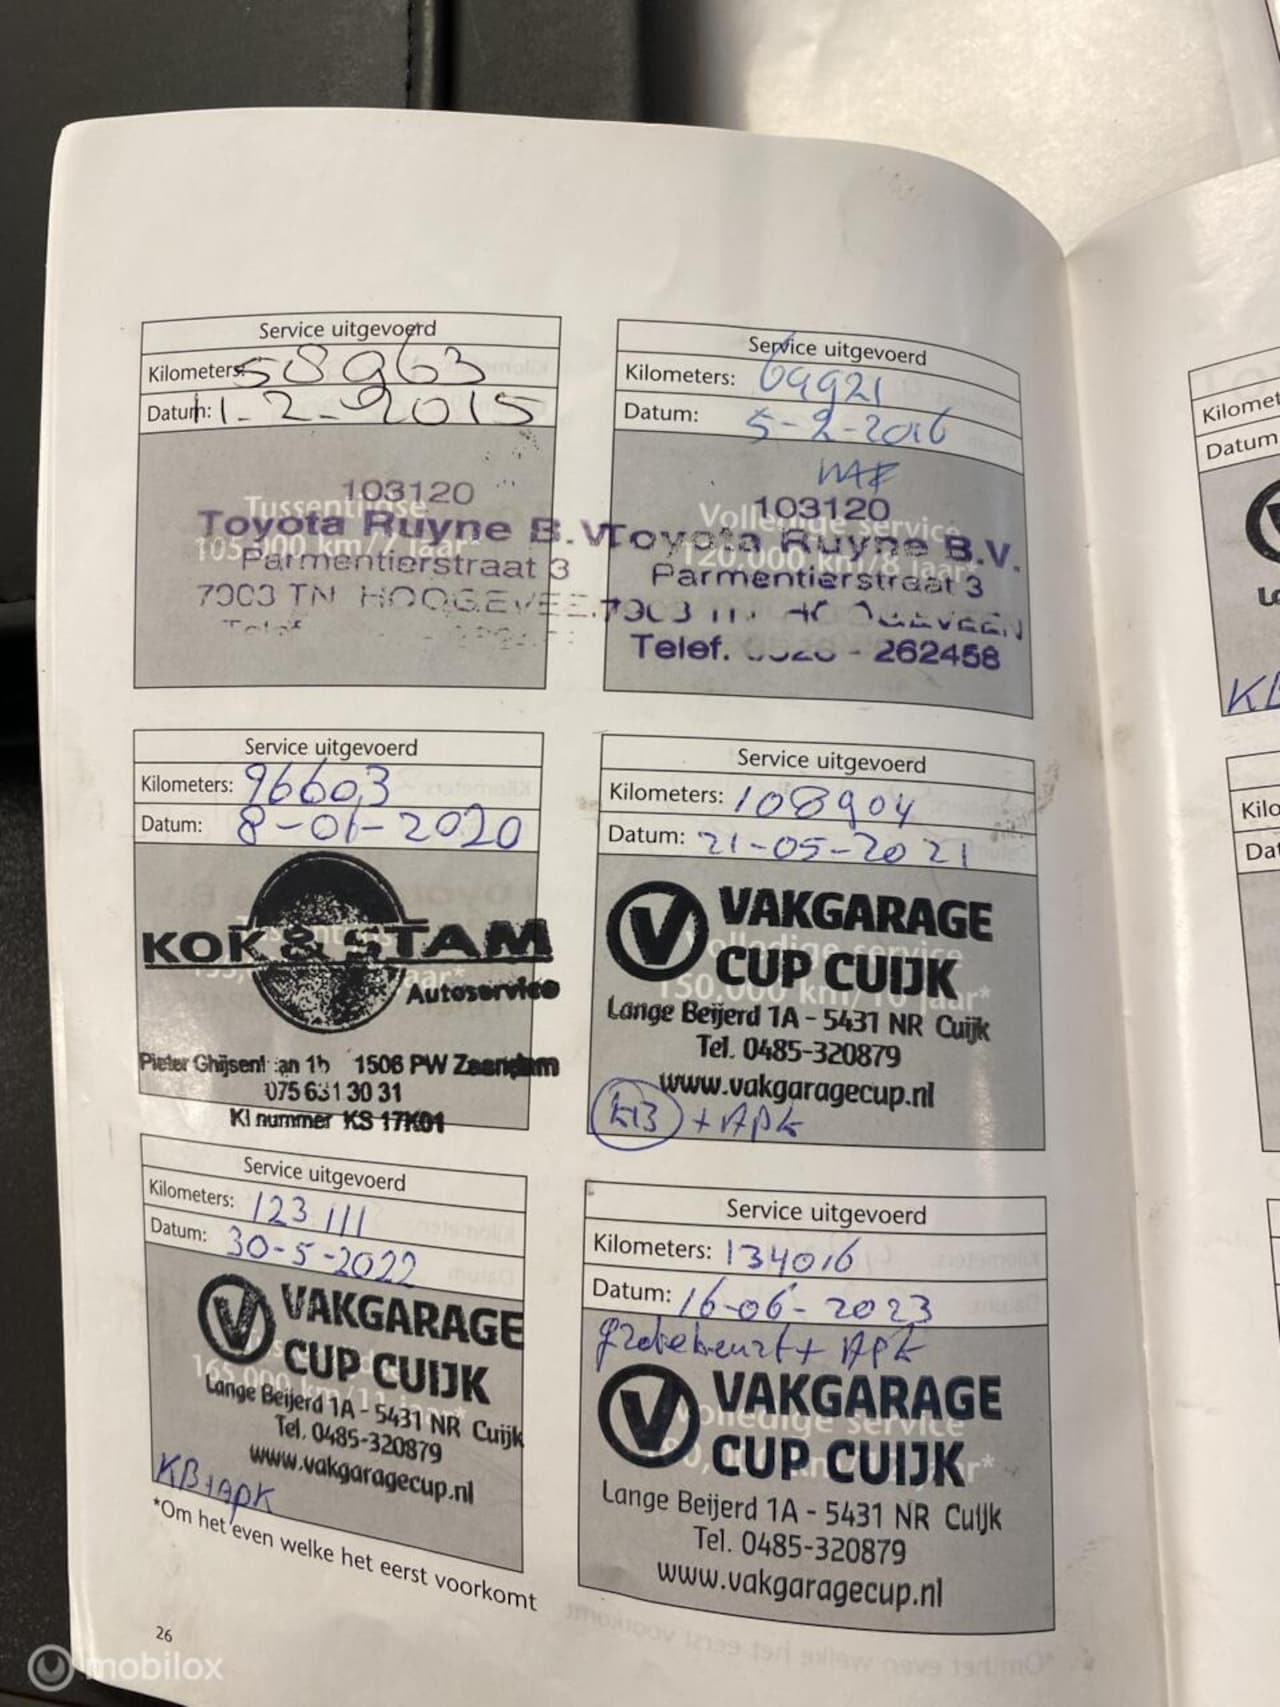 Service uitgevoerd
Kilometers: 58963
Datum: 11-2-2015
Tussentijdse
105,000 km/7 jaar*
103120
Toyota Ruyne B.V.
Parmentierstraat 3
7903 TN HOOGEVEE
Service uitgevoerd
Kilometers: 69921
Datum: 5-2-2016
Volledige service
120,000 km/8 jaar*
103120
Toyota Ruyne B.V.
Parmentierstraat 3
7903 TN HOOGEVEEN
Telef. 0528 - 262458
Service uitgevoerd
Kilometers: 96603
Datum: 8-01-2020
jaar*
KOK & STAM
Autoservice
Pieter Ghijsenlaan 1b 1506 PW Zaandam
075 631 30 31
KI nummer KS 17K01
Service uitgevoerd
Kilometers: 108904
Datum: 21-05-2021
Volledige service
150,000 km/10 jaar*
VAKGARAGE
CUP CUIJK
Lange Beijerd 1A - 5431 NR Cuijk
Tel. 0485-320879
www.vakgaragecup.nl
KB + APK
Service uitgevoerd
Kilometers: 123.111
Datum: 30-5-2022
165,000 km/11 jaar*
VAKGARAGE
CUP CUIJK
Lange Beijerd 1A - 5431 NR Cuijk
Tel. 0485-320879
www.vakgaragecup.nl
KB+APK
Service uitgevoerd
Kilometers: 134016
Datum: 16-06-2023
grote beurt + APK
Volledige service
jaar*
VAKGARAGE
CUP CUIJK
Lange Beijerd 1A - 5431 NR Cuijk
Tel. 0485-320879
www.vakgaragecup.nl
*Om het even welke het eerst voorkomt
26
Kilomet
Datum
Kilo
Dat
mobilox